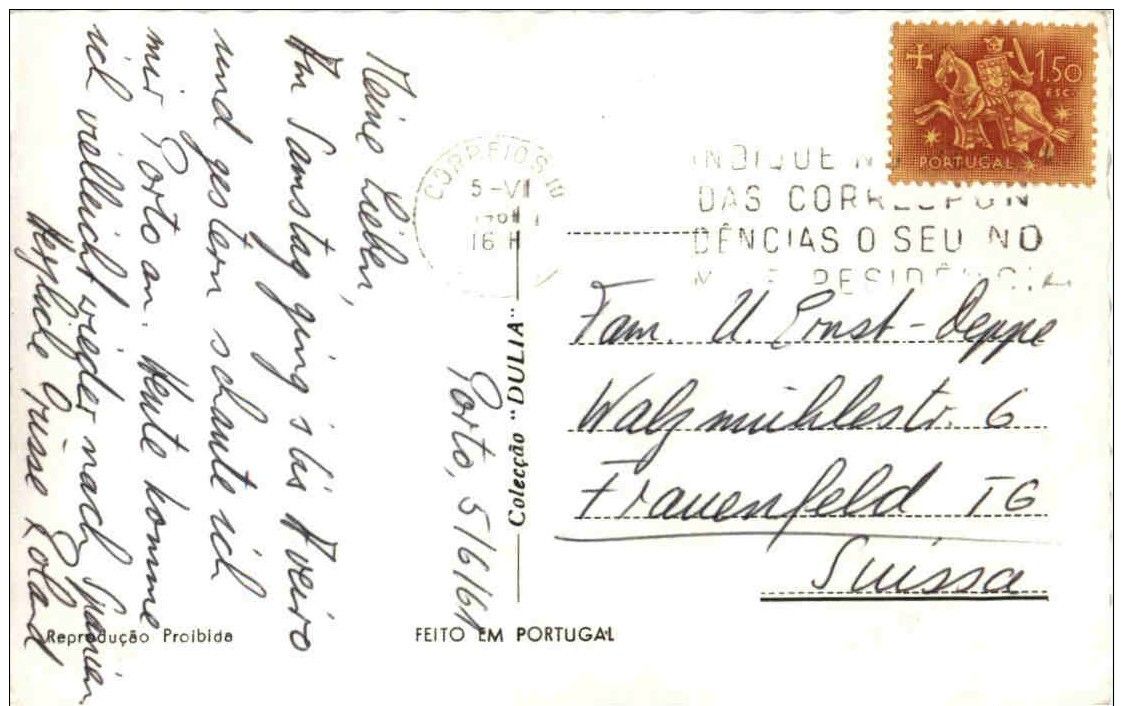 Porto, 5/6/61
Meine Lieben,
Am Samstag ging's bis Aveiro
und gestern schaute ich
mir Porto an. Heute komme
ich vielleicht wieder nach Spanien
Herzliche Grüsse Roland
1.50
ESC.
PORTUGAL
CORREIOS
5-VI
16 H
INDIQUE
DAS CORRESPON
DÊNCIAS O SEU NO
RESIDÊNCIA
Fam. U. Ernst-Deppe
Walzmühlestr. 6
Frauenfeld TG
Suissa
Colecção "DULIA"
Reprodução Proibida
FEITO EM PORTUGAL